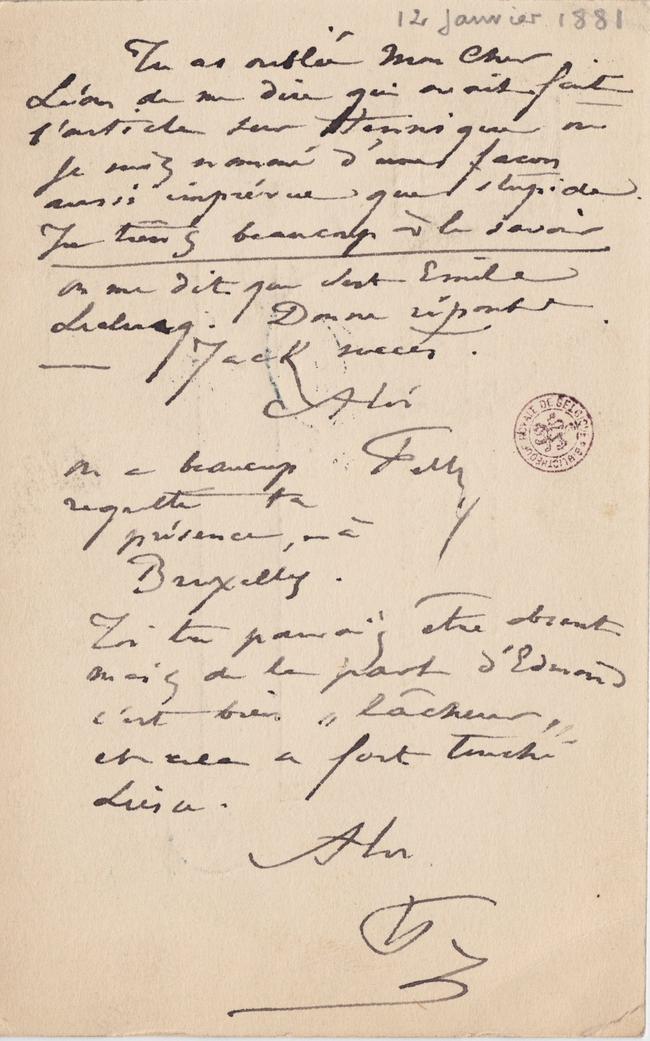 12 Janvier 1881
Tu as oublié Mon Cher
Léon de me dire qui avait fait
l'article sur Hennique où
je suis nommé d'une façon
aussi imprévue que stupide.
Je tiens beaucoup à le savoir
on me dit que c'est Emile
Leclercq. Donne réponse.
Jack succès.
à toi
Fély
on a beaucoup
regretté ta
présence, à
Bruxelles.
Toi tu pouvais être absent
mais de la part d'Edmond
c'est bien „lâcheur„
et cela a fort touché
à toi
BIBLIOTHÈQUE ROYALE DE BELGIQUE